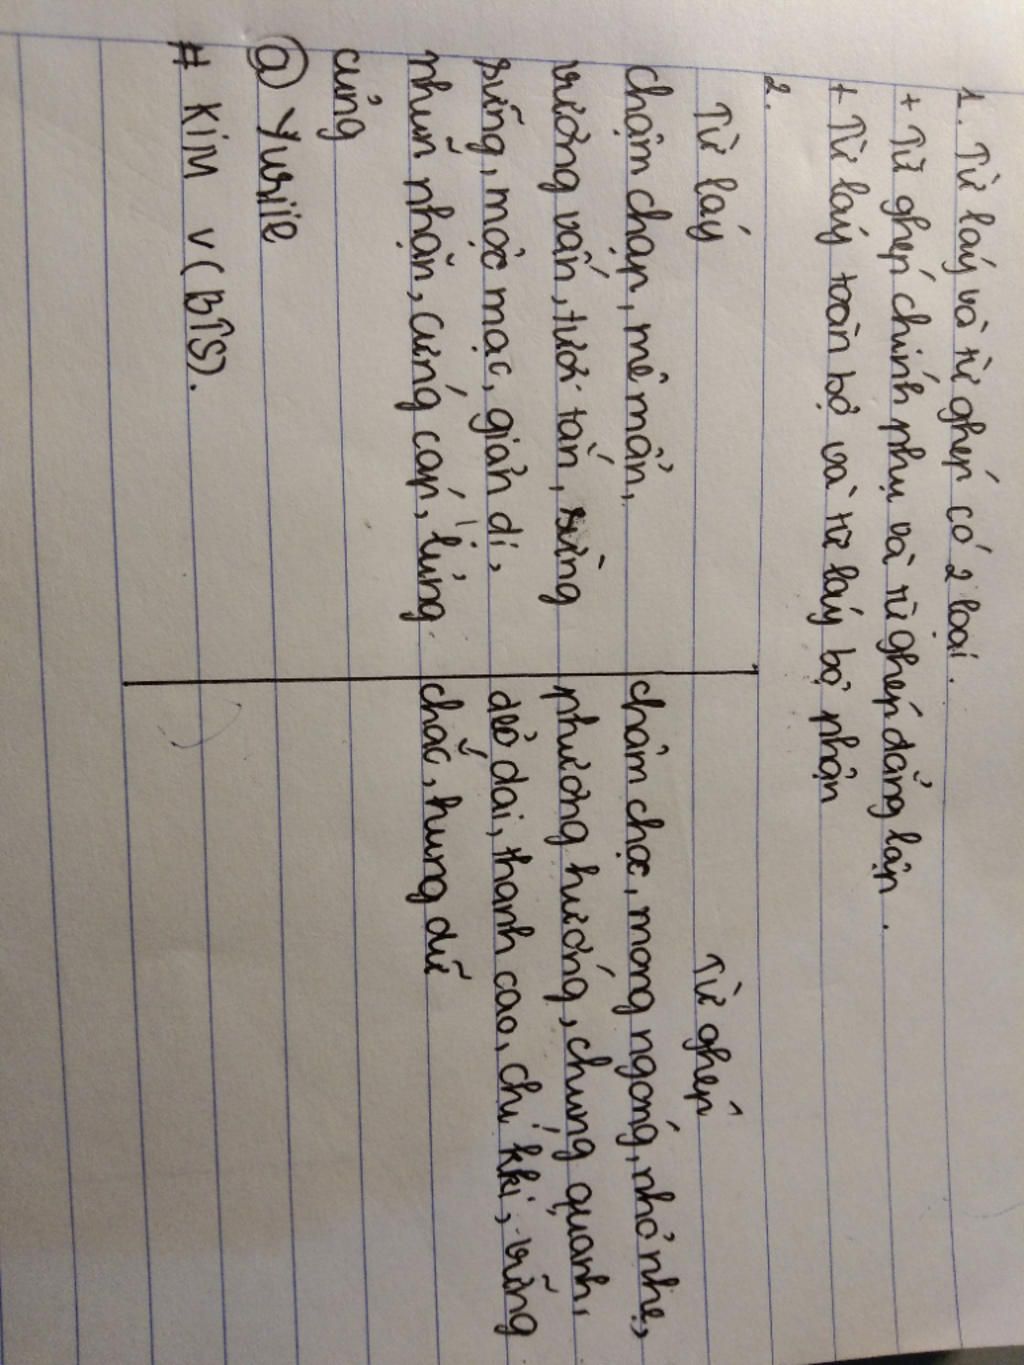 1. Từ láy và từ ghép có 2 loại.
+ Từ ghép chính phụ và từ ghép đẳng lập.
+ Từ láy toàn bộ và từ láy bộ phận
2.
Từ láy
chậm chạp, mê mẩn,
vương vấn, tươi tắn, sừng
sững, mộc mạc, giản dị,
nhũn nhặn, cứng cáp, lủng
củng
Từ ghép
châm chọc, mong ngóng, nhỏ nhẹ,
phương hướng, chung quanh,
dẻo dai, thanh cao, chí khí, vững
chắc, hung dữ
@ Yuriie
# Kim V (BTS).